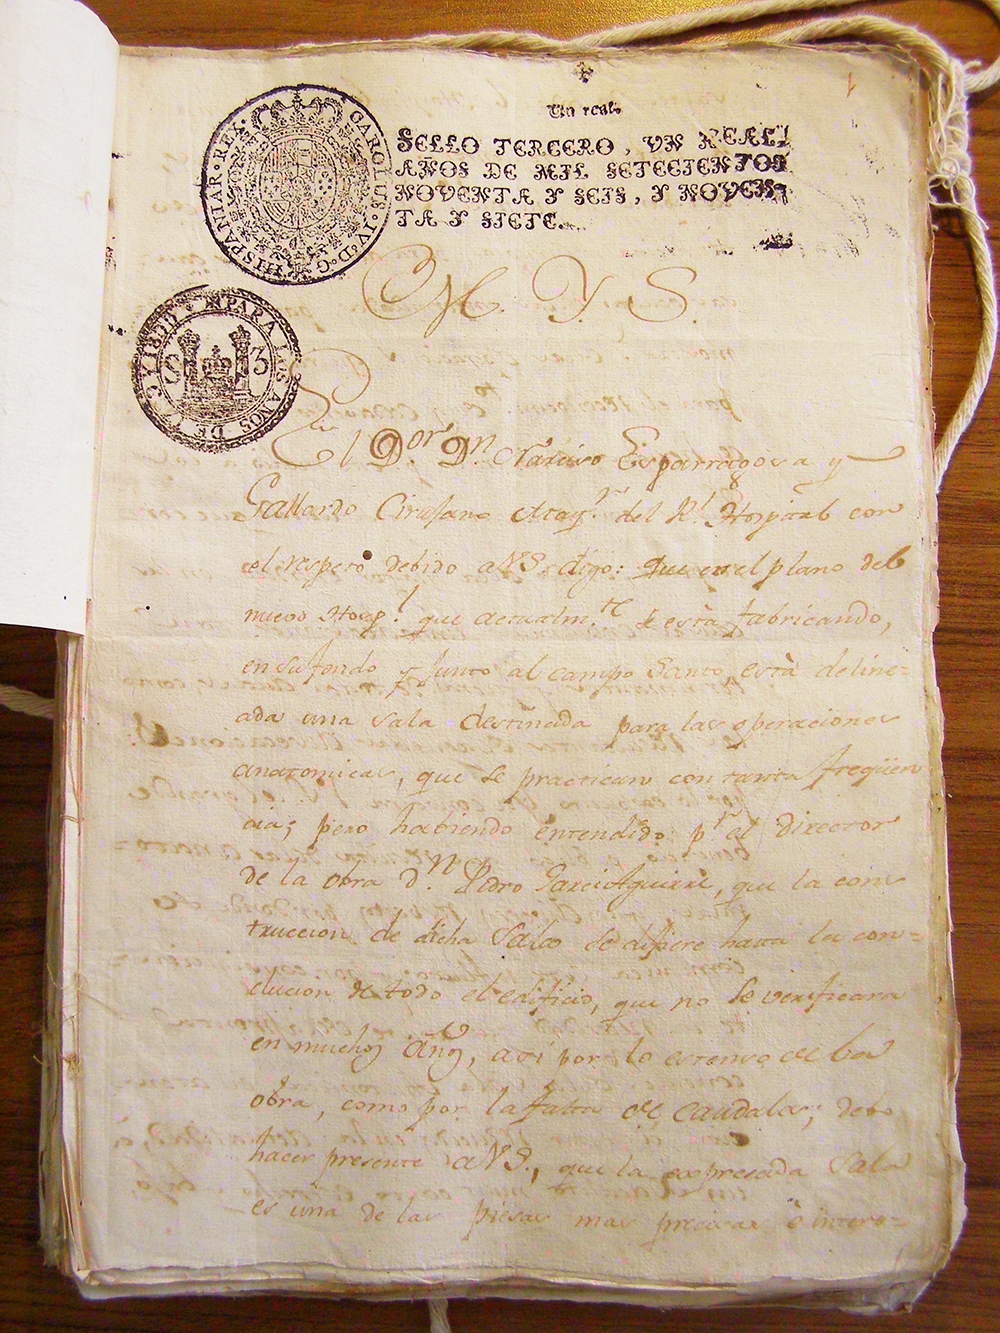 Un real.
SELLO TERCERO, UN REAL,
AÑOS DE MIL SETECIENTOS
NOVENTA Y SEIS, Y NOVEN-
TA Y SIETE.
CAROLUS · IV · D · G · HISPANIAR · REX ·
PARA LOS AÑOS DE Y 1800
S 3
M. Y. S.
El Dor. Dn. Narciso Esparragosa y
Gallardo Cirujano Mayr. del Rl. Hospital con
el respeto debido a VS. digo: Que en el plano del
nuevo Hospl. que actualmte. se està fabricando,
en su fondo y junto al campo Santo està deline-
ada una sala destinada para las operaciones
anatomicas, que se practican con tanta freqüen
cia; pero habiendo entendido pr. el director
de la obra dn. Pedro Garci Aguirre, que la cons
truccion de dicha Sala se difiere hasta la con-
clucion de todo el edificio, que no se verificara
en muchos años, asi por lo estenso de la
obra, como por la falta de caudales; debo
hacer presente a VS., que la expresada Sala
es una de las piesas mas precisas è intere-